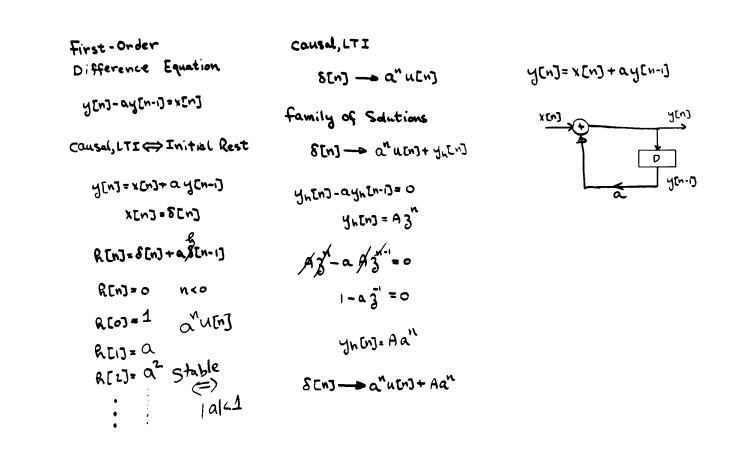 First-Order
Difference Equation
y[n]-ay[n-1]=x[n]
Causal, LTI ⇔ Initial Rest
y[n]=x[n]+ay[n-1]
x[n]=δ[n]
h
h[n]=δ[n]+aδ[n-1]
h[n]=0 n<0
h[0]=1 aⁿu[n]
h[1]=a
h[2]=a² Stable
⇔
|a|<1
Causal, LTI
δ[n] → aⁿu[n]
family of Solutions
δ[n] → aⁿu[n]+yₕ[n]
yₕ[n]-ayₕ[n-1]=0
yₕ[n]=Azⁿ
Azⁿ-aAzⁿ⁻¹=0
1-az⁻¹=0
yₕ[n]=Aaⁿ
δ[n] → aⁿu[n]+Aaⁿ
y[n]=x[n]+ay[n-1]
x[n] + y[n]
D
y[n-1]
a